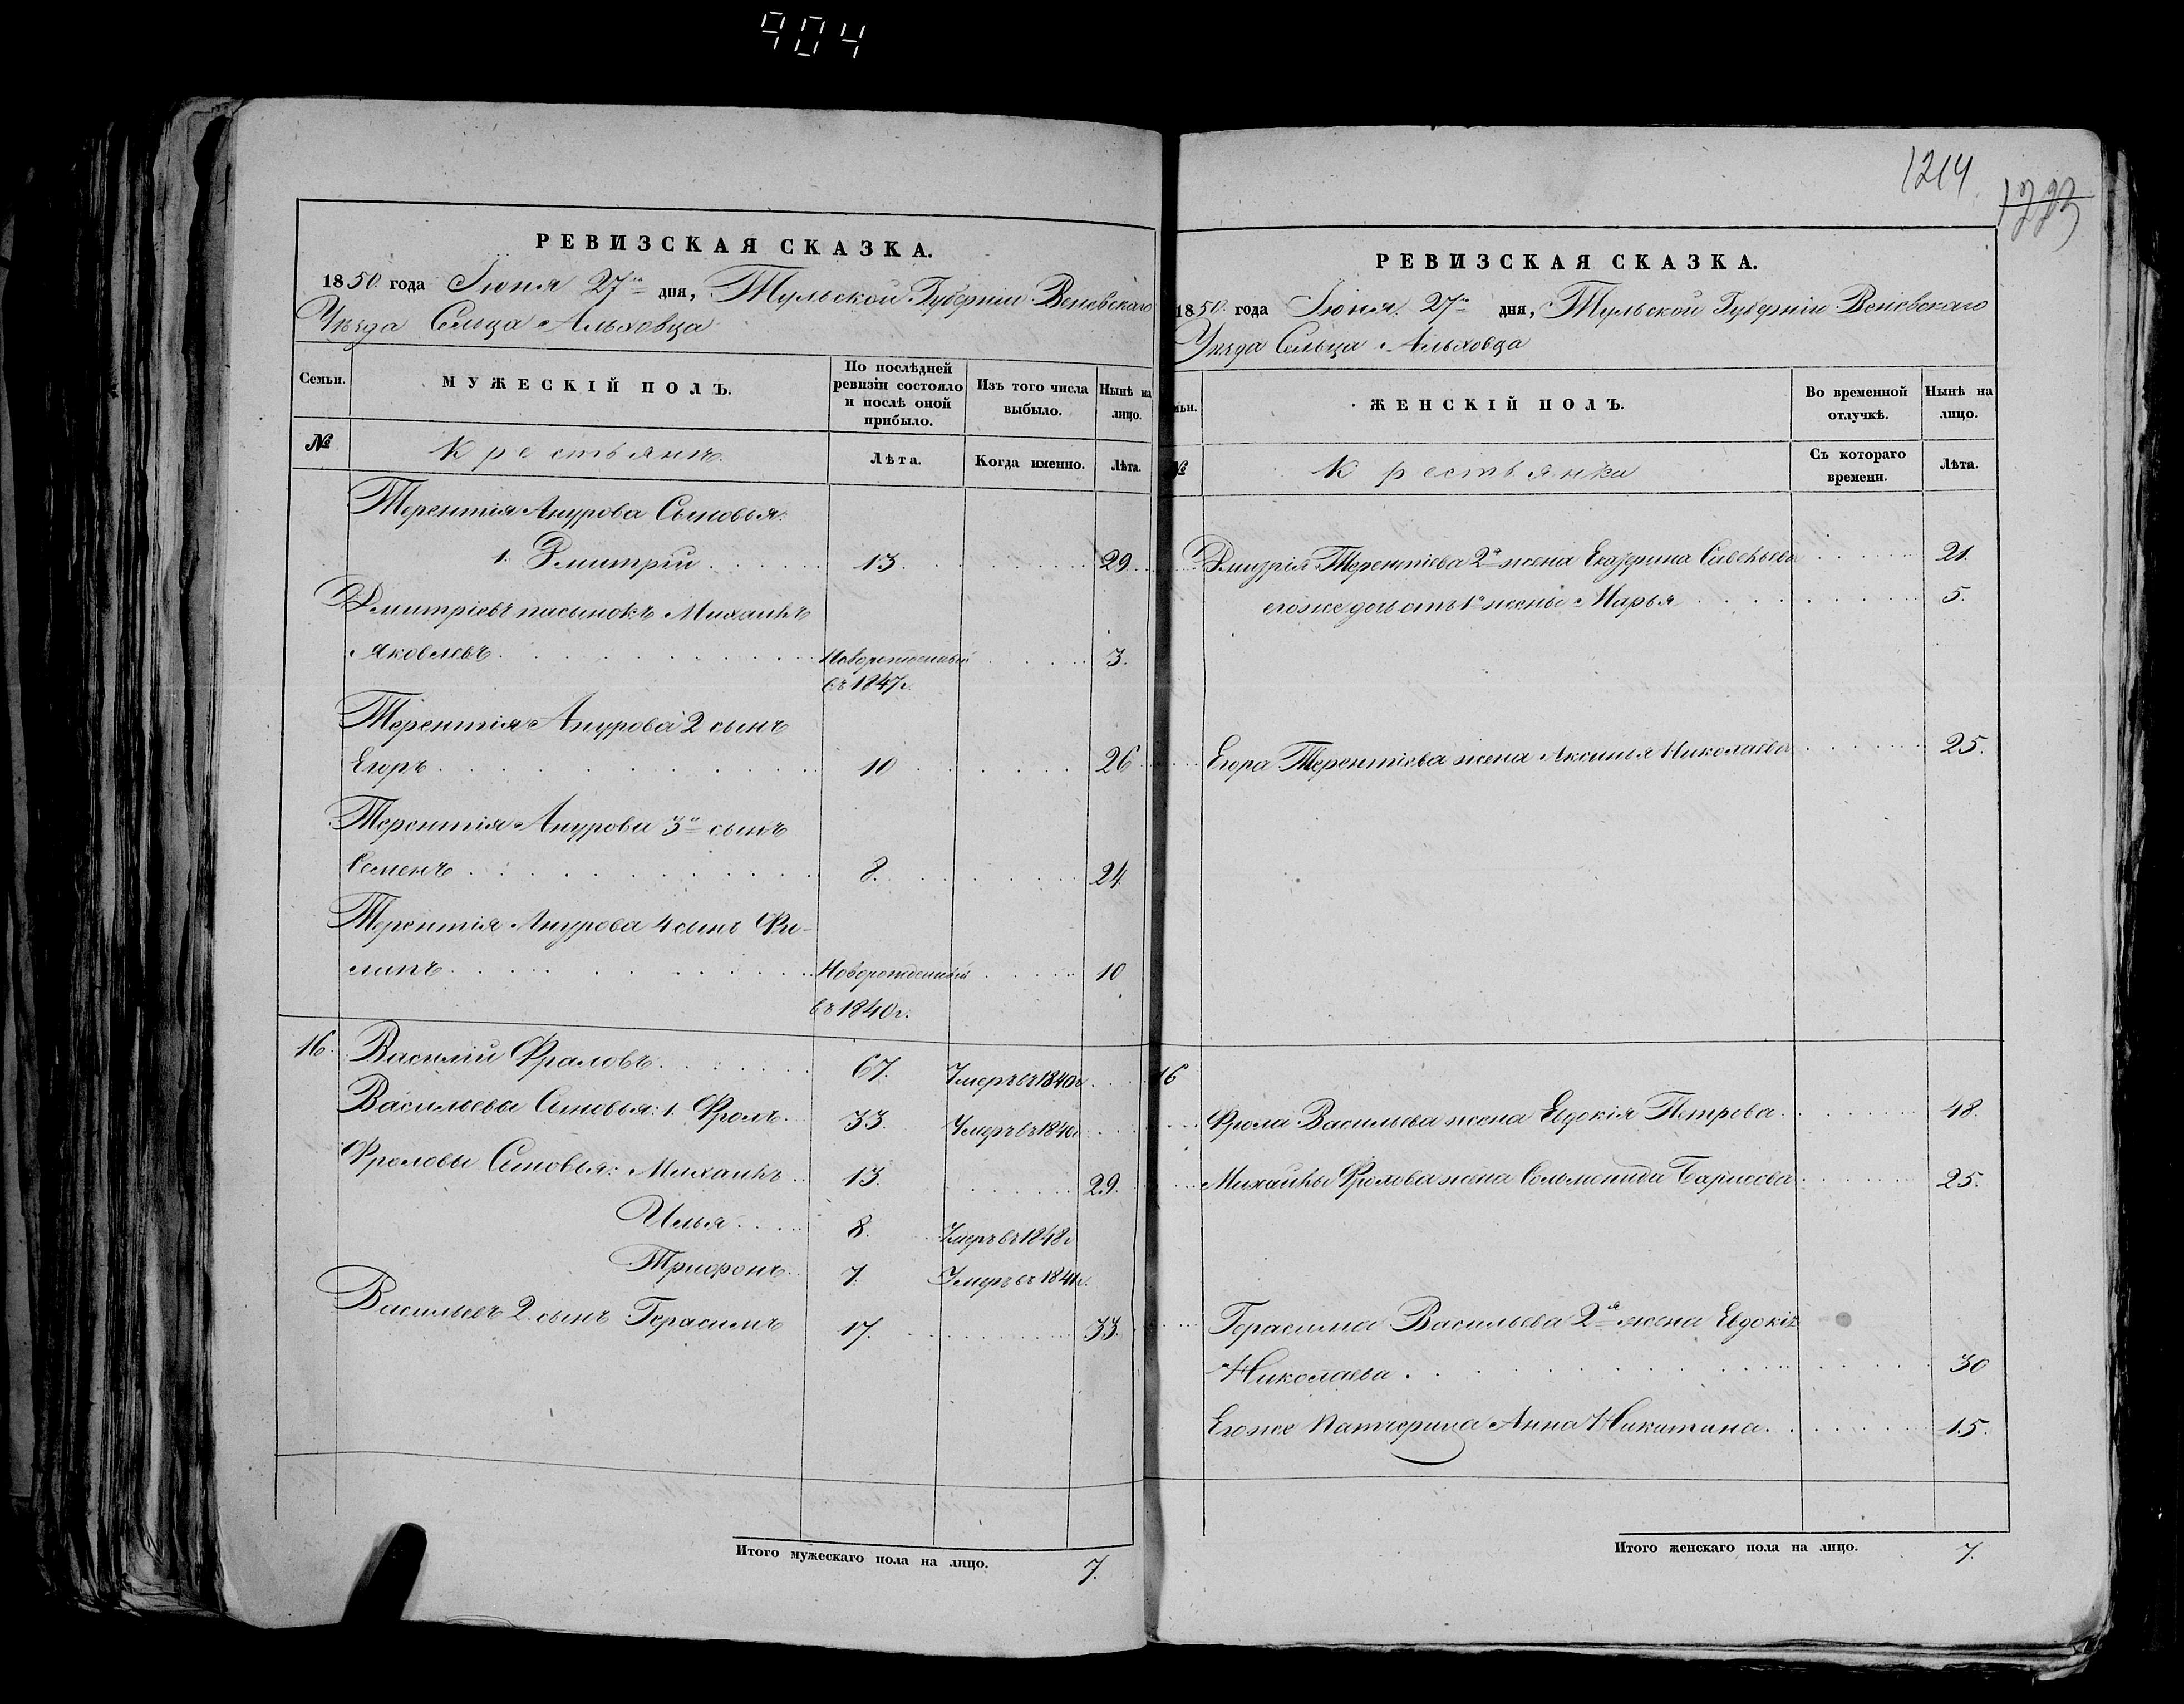 404
РЕВИЗСКАЯ СКАЗКА.
1850 года Июня 27го дня, Тульской Губерніи Веневскаго
Уѣзда Сельца Альховца
Семьи.
МУЖЕСКІЙ ПОЛЪ.
По послѣдней ревизіи состояло и послѣ оной прибыло.
Изъ того числа выбыло.
Нынѣ на лицо.
№
Крестьянъ.
Лѣта.
Когда именно.
Лѣта.
Терентія Анурова Сыновья:
1. Дмитрій 13. 29.
Дмитріевъ пасынокъ Михаилъ
Яковлевъ Новорожденный 3.
съ 1847г.
Терентія Анурова 2 сынъ
Егоръ 10 26
Терентія Анурова 3й сынъ
Семенъ 8. 24
Терентія Анурова 4 сынъ Фи-
липъ Новорожденный 10
въ 1840г.
16. Василій Фраловъ 67. Умеръ въ 1840г
Васильевы Сыновья: 1. Фролъ 33. Умеръ въ 1840г
Фроловы Сыновья: Михаилъ 13. 29.
Илья 8. Умеръ въ 1848г
Трифонъ 7. Умеръ въ
Васильевъ 2. сынъ Герасимъ 17. 33.
Итого мужескаго пола на лицо. 7.
1214
1223
РЕВИЗСКАЯ СКАЗКА.
1850 года Июня 27го дня, Тульской Губерніи Веневскаго
Уѣзда Сельца Альховца
ьи.
ЖЕНСКІЙ ПОЛЪ.
Во временной отлучкѣ.
Нынѣ на лицо.
№
Крестьянка
Съ котораго времени.
Лѣта.
Дмитрія Терентіева 2я жена Екатерина Савельева 21.
егоже дочь отъ 1й жены Марья 5.
Егора Терентіева жена Аксинья Николаева 25.
16
Фрола Васильева жена Евдокія Петрова 48.
Михаилы Фролова жена Соломонида Барисова 25.
Герасима Васильева 2я жена Евдокія
Николаева 30
Егоже Патчерица Анна Никитина 15.
Итого женскаго пола на лицо. 7.